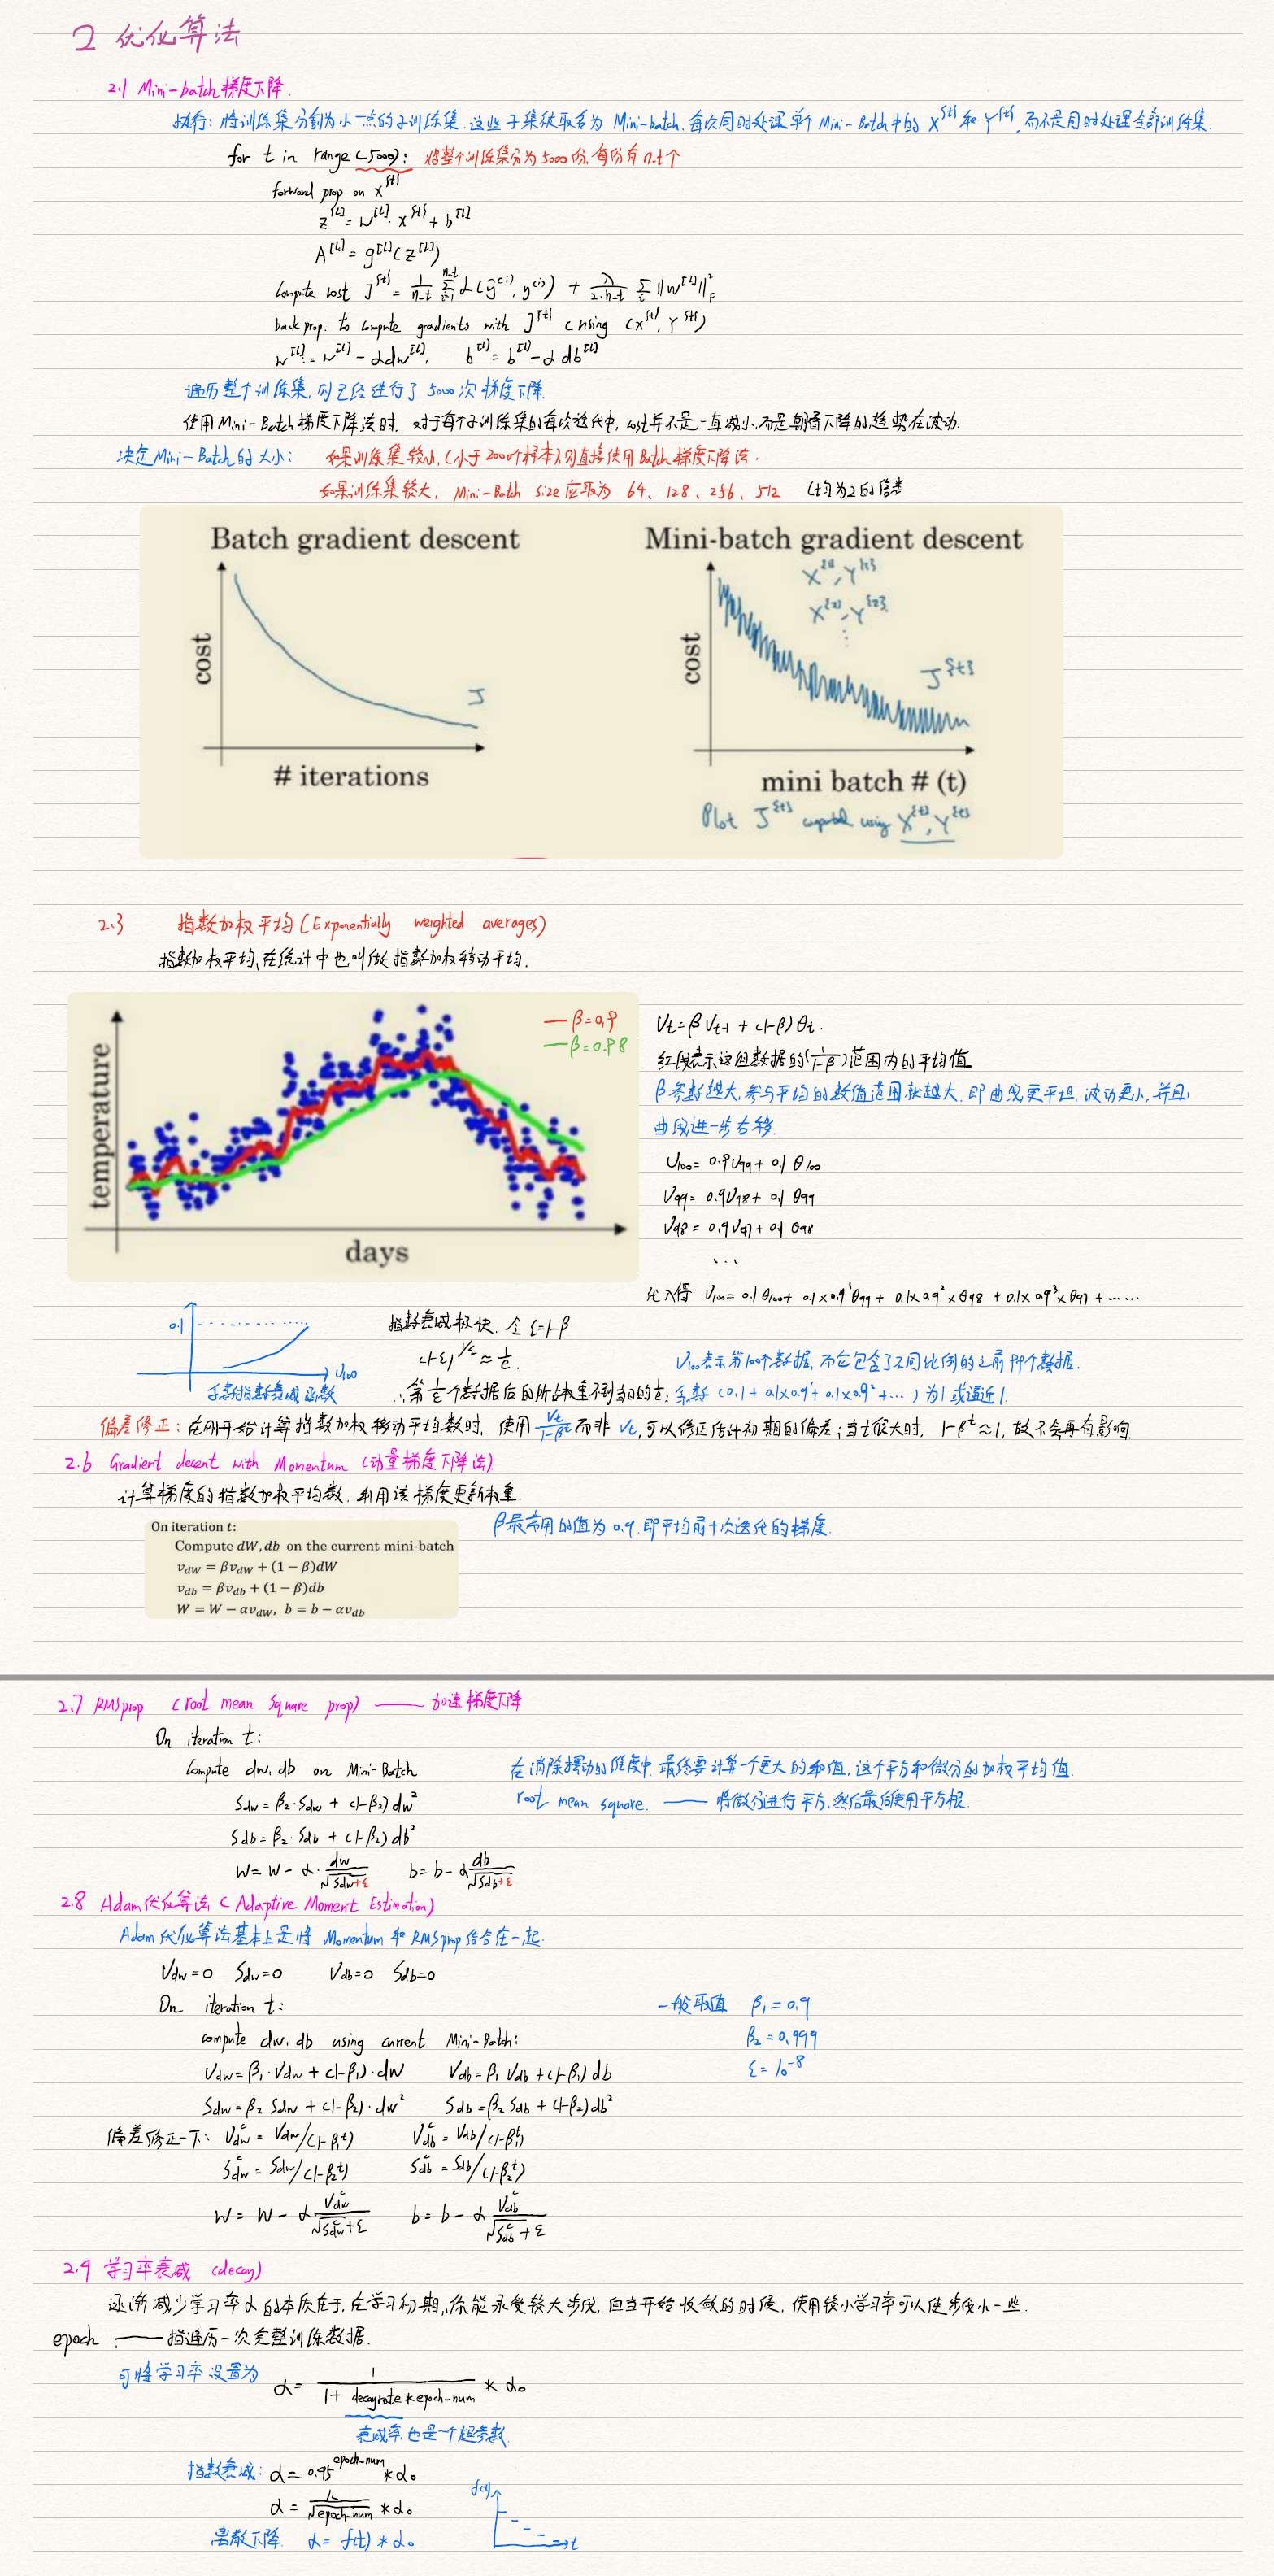 2 优化算法
2.1 Mini-batch梯度下降.
执行: 将训练集分割为小一点的子训练集.这些子集被取名为 Mini-batch. 每次同时处理单个 Mini-Batch中的 X^{t} 和 Y^{t}, 而不是同时处理全部训练集.
for t in range(5000): 将整个训练集分为5000份,每份有n_t个
forward prop on X^{t}
Z^[L] = W^[L]·X^{t} + b^[L]
A^[L] = g^[L](Z^[L])
Compute cost J^{t} = 1/n_t Σ_{i=1}^{n_t} L(ŷ^(i), y^(i)) + λ/(2·n_t) Σ_L ||W^[L]||_F^2
back prop. to compute gradients with J^{t} (using (X^{t}, Y^{t})
W^[L] := W^[L] - αdW^[L], b^[L] = b^[L] - αdb^[L]
遍历整个训练集, 则已经进行了5000次梯度下降.
使用Mini-Batch梯度下降法时. 对于每个子训练集的每次迭代中, cost并不是一直减小,而是朝着下降的趋势在波动.
决定Mini-Batch的大小: 如果训练集较小,(小于2000个样本),则直接使用Batch梯度下降法.
如果训练集较大, Mini-Batch size应取为 64、128、256、512 (均为2的倍差
Batch gradient descent
cost
J
# iterations
Mini-batch gradient descent
X^{1}, Y^{1}
X^{2}, Y^{2}
⋮
cost
J^{t}
mini batch # (t)
Plot J^{t} computed using X^{t}, Y^{t}
2.3 指数加权平均(Exponentially weighted averages)
指数加权平均,在统计中也叫做指数加权移动平均.
temperature
— β=0.9
— β=0.98
days
V_t = βV_{t-1} + (1-β)θ_t.
红线表示这组数据的(1/(1-β))范围内的平均值
β参数越大,参与平均的数值范围就越大.即曲线更平坦,波动更小,并且
曲线进一步右移.
V_100 = 0.9V_99 + 0.1 θ_100
V_99 = 0.9V_98 + 0.1 θ_99
V_98 = 0.9V_97 + 0.1 θ_98
...
代入得 V_100 = 0.1θ_100 + 0.1×0.9^1θ_99 + 0.1×0.9^2×θ_98 + 0.1×0.9^3×θ_97 + ......
0.1
V_100
系数指数衰减函数
指数衰减极快. 令 ε=1-β
(1-ε)^{1/ε} ≈ 1/e.
V_100表示第100个数据, 而它包含了不同比例的之前99个数据.
∴ 第1/ε个数据后的所占权重不到当日的1/e; 系数 (0.1 + 0.1×0.9^1 + 0.1×0.9^2 + ...) 为1或逼近1.
偏差修正: 在刚开始计算指数加权移动平均数时, 使用 V_t/(1-β^t) 而非 V_t, 可以修正估计初期的偏差; 当t很大时, 1-β^t≈1, 故不会再有影响.
2.6 Gradient decent with Momentum (动量梯度下降法)
计算梯度的指数加权平均数, 利用该梯度更新权重.
On iteration t:
Compute dW, db on the current mini-batch
v_dW = βv_dW + (1 − β)dW
v_db = βv_db + (1 − β)db
W = W − αv_dW, b = b − αv_db
β最常用的值为 0.9. 即平均前十次迭代的梯度.
2.7 RMSprop (root mean square prop) —— 加速梯度下降
On iteration t:
Compute dw, db on Mini-Batch
在消除摆动的维度中, 最终要计算一个更大的和值, 这个平方和微分的加权平均值.
S_dw = β_2·S_dw + (1-β_2)dw^2
root mean square. —— 将微分进行平方,然后最后使用平方根.
S_db = β_2·S_db + (1-β_2)db^2
W = W - α·dw/√(S_dw+ε) b = b - α db/√(S_db+ε)
2.8 Adam优化算法 (Adaptive Moment Estimation)
Adam优化算法基本上是将 Momentum 和 RMSprop结合在一起.
V_dw=0 S_dw=0 V_db=0 S_db=0
On iteration t:
一般取值 β_1=0.9
compute dw, db using current Mini-Batch:
β_2=0.999
V_dw = β_1·V_dw + (1-β_1)·dW V_db = β_1 V_db + (1-β_1)db
ε=10^-8
S_dw = β_2 S_dw + (1-β_2)·dw^2 S_db = β_2 S_db + (1-β_2)db^2
偏差修正一下: V_dw^c = V_dw/(1-β_1^t) V_db^c = V_db/(1-β_1^t)
S_dw^c = S_dw/(1-β_2^t) S_db^c = S_db/(1-β_2^t)
W = W - α V_dw^c/(√S_dw^c+ε) b = b - α V_db^c/(√S_db^c+ε)
2.9 学习率衰减 (decay)
逐渐减少学习率α的本质在于,在学习初期,你能承受较大步伐,但当开始收敛的时候, 使用较小学习率可以使步伐小一些.
epoch —— 指遍历一次完整训练数据.
可将学习率设置为 α = 1/(1+decayrate*epoch-num) * α_0
衰减率,也是一个超参数
指数衰减: α = 0.95^{epoch-num} * α_0
α = k/√epoch-num * α_0
离散下降. α = f(t) * α_0
f(t)
t